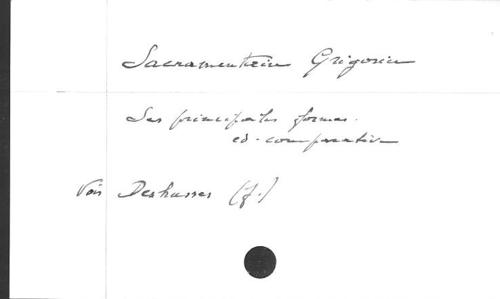 Sacramentaire Grégorien
Les principales formes.
ed. comparative
Voir Deshusses (J.)